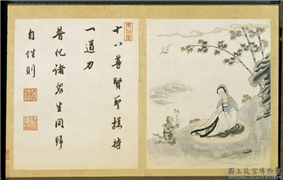 十八尊賢聖摠持
一道力
普化諸眾生同歸
自性則
國立故宮博物院